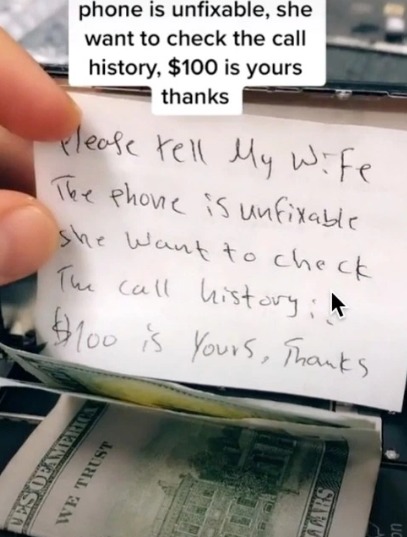 phone is unfixable, she
want to check the call
history, $100 is yours
thanks
Please tell My Wife
The phone is unfixable
she want to check
The call history:
$100 is Yours, Thanks
OF AMERICA
WE TRUST